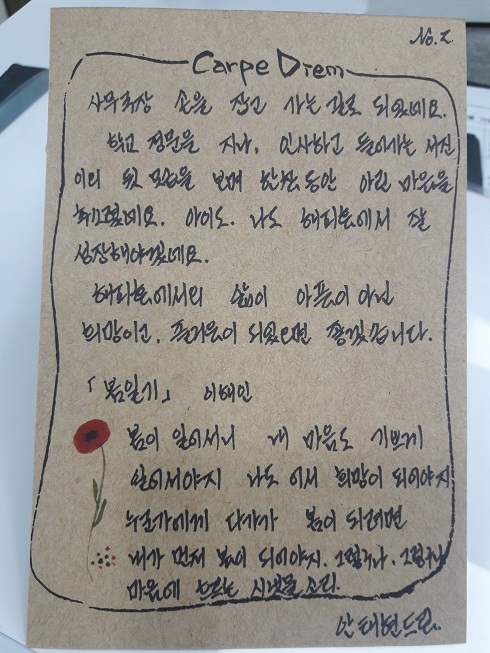 No. 2
Carpe Diem
손을 잡고 사는 길로 되었네요.
학교 정문을 지나, 인사하고 들어가는 서진
이의 뒷 모습을 보며 한참 동안 아린 마음을
네요. 아이도. 나도 에서 잘
성장해야겠네요.
에서의 삶이 아픔이 아닌
희망이고, 즐거움이 되었으면 좋겠습니다.
「봄일기」 이해인
봄이 일어서니 내 마음도 기쁘게
일어서야지 나도 어서 희망이 되어야지
누군가에게 다가가 봄이 되려면
내가 먼저 봄이 되어야지. 그렇구나. 그렇구나
마음에 흐르는 시냇물 소리.
드림.